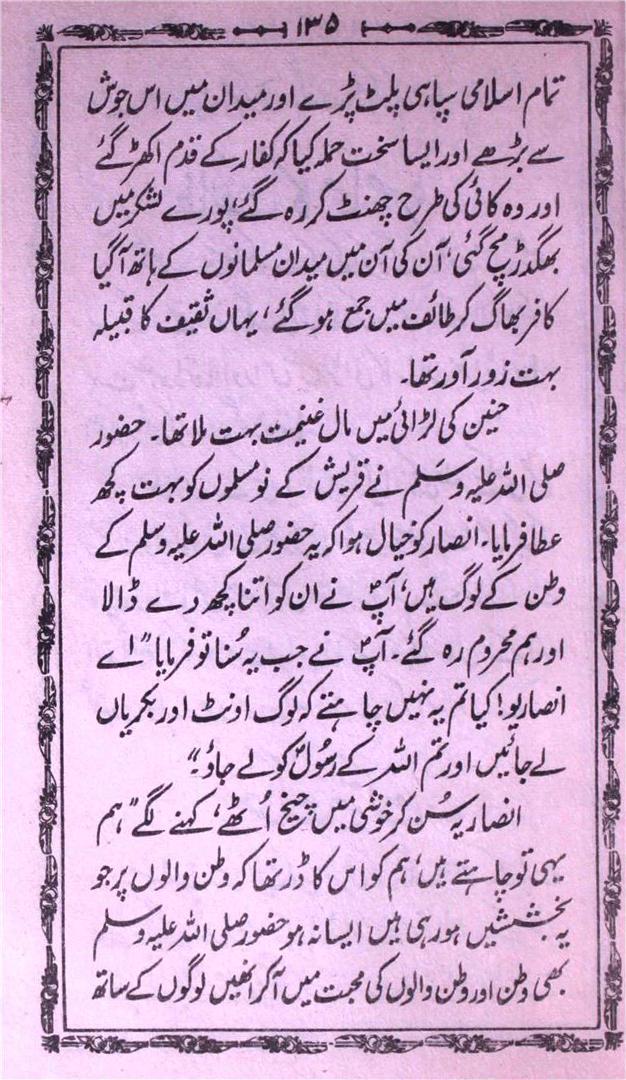 ۱۳۵
تمام اسلامی سپاہی پلٹ پڑے اور میدان میں اس جوش
سے بڑھے اور ایسا سخت حملہ کیا کہ کفار کے قدم اکھڑ گئے
اور وہ کائی کی طرح چھنٹ کر رہ گئے، پورے لشکر میں
بھگدڑ مچ گئی، آن کی آن میں میدان مسلمانوں کے ہاتھ آگیا
کافر بھاگ کر طائف میں جمع ہو گئے، یہاں ثقیف کا قبیلہ
بہت زور آور تھا۔
حنین کی لڑائی میں مال غنیمت بہت ملا تھا۔ حضور
صلی اللہ علیہ وسلم نے قریش کے نومسلموں کو بہت کچھ
عطا فرمایا۔ انصار کو خیال ہوا کہ یہ حضور صلی اللہ علیہ وسلم کے
وطن کے لوگ ہیں، آپؐ نے ان کو اتنا کچھ دے ڈالا
اور ہم محروم رہ گئے۔ آپؐ نے جب یہ سُنا تو فرمایا "اے
انصاریو! کیا تم یہ نہیں چاہتے کہ لوگ اونٹ اور بکریاں
لے جائیں اور تم اللہ کے رسُولؐ کو لے جاؤ۔"
انصار یہ سُن کر خوشی میں چیخ اُٹھے، کہنے لگے "ہم
یہی تو چاہتے ہیں، ہم کو اس کا ڈر تھا کہ وطن والوں پر جو
یہ بخششیں ہو رہی ہیں ایسا نہ ہو حضور صلی اللہ علیہ وسلم
بھی وطن اور وطن والوں کی محبت میں آکر انھیں لوگوں کے ساتھ